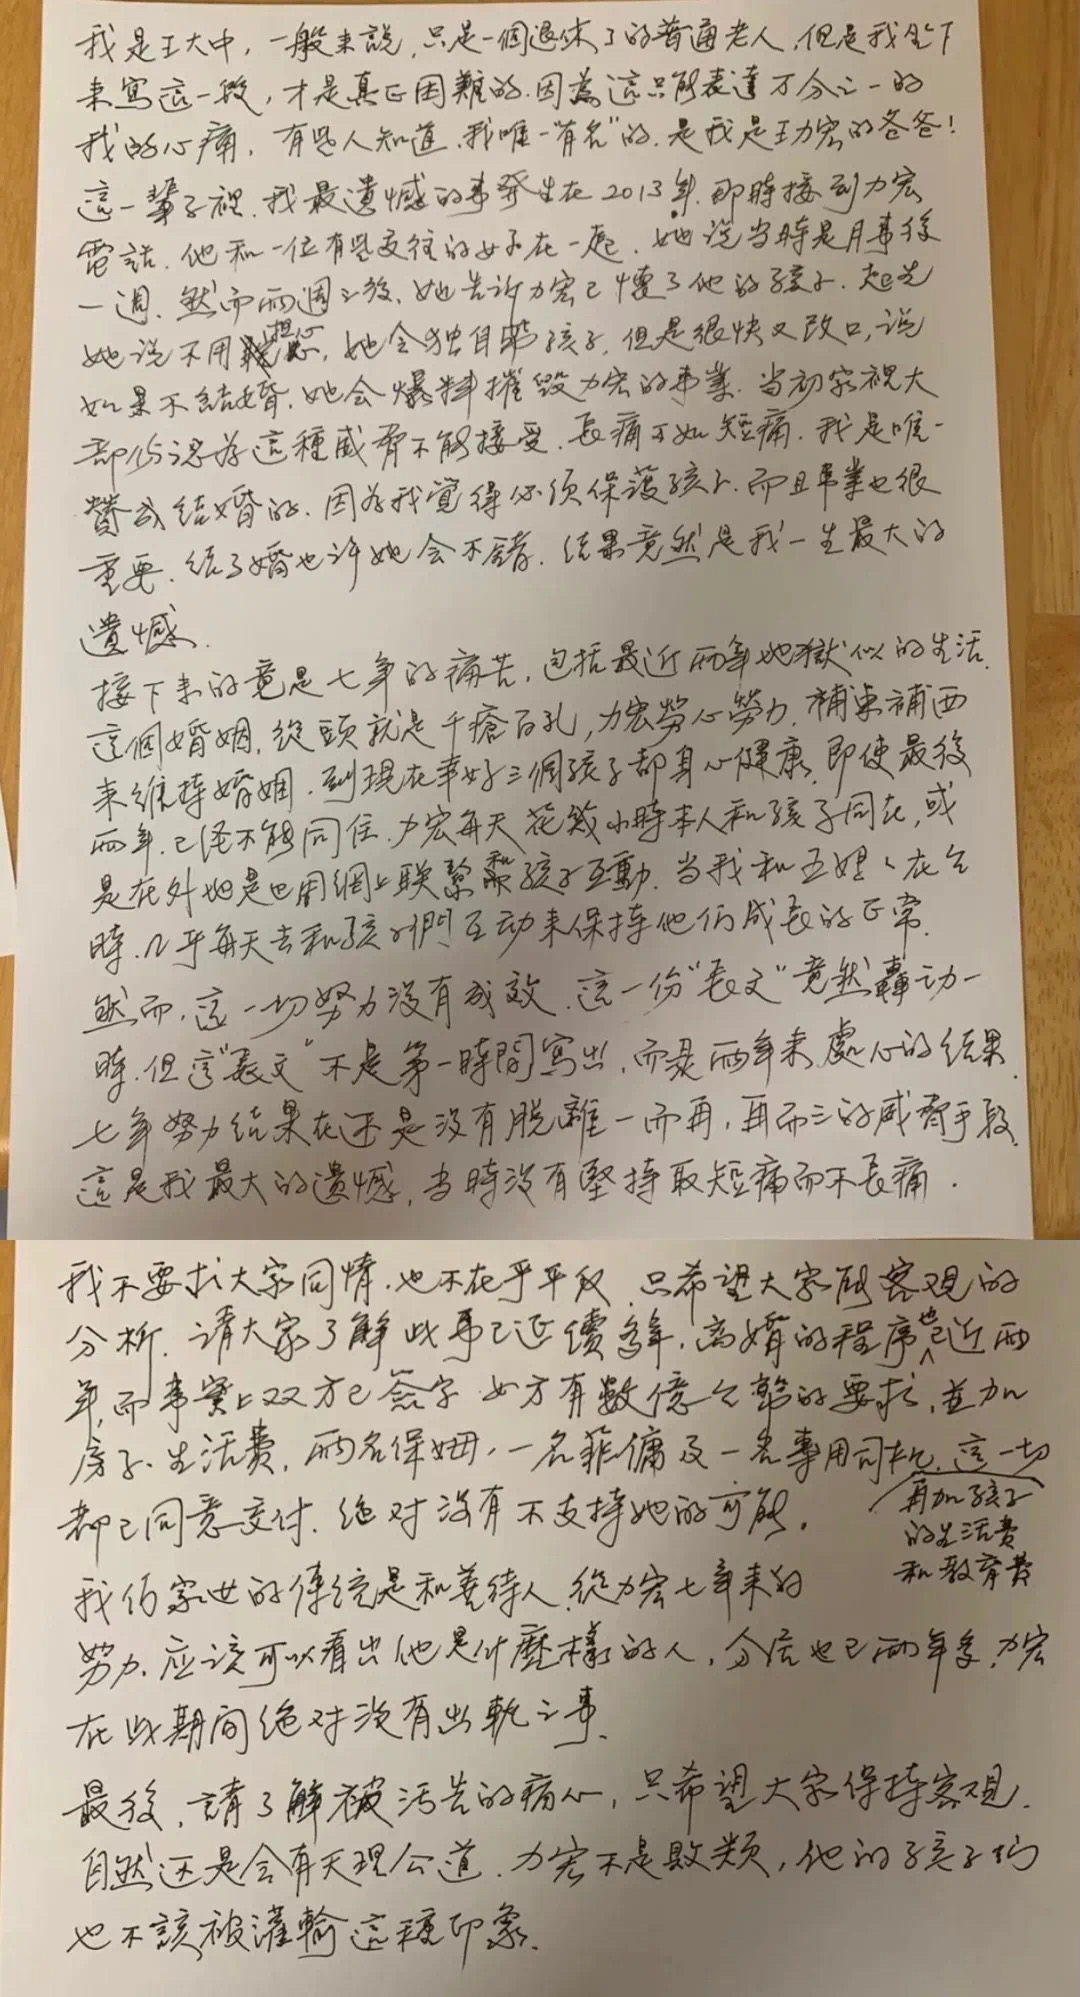 我是王大中，一般来說，只是一個退休了的普通老人，但是我坐下
来寫這一段，才是真正困難的。因為這只能表達万分之一的
我的心痛，有些人知道，我唯一"有名"的，是我是王力宏的爸爸！
這一輩子裡，我最遺憾的事発生在2013年，那時接到力宏
電話，他和一位有些交往的女子在一起，她说当時是月事後
一週，然而两週之後，她告訴力宏已懷了他的孩子，起先
她说不用担心，她会独自帶孩子，但是很快又改口，说
如果不結婚，她会爆料摧毀力宏的事業，当初家裡大
部份認为這種威脅不能接受，長痛不如短痛，我是唯一
贊成结婚的，因为我覚得必须保護孩子，而且事業也很
重要，结了婚也许她会不錯，结果竟然是我一生最大的
遺憾。
接下来的竟是七年的痛苦，包括最近两年地獄似的生活。
這個婚姻，從頭就是千瘡百孔，力宏勞心勞力，補東補西
来維持婚姻，到現在幸好三個孩子都身心健康，即使最後
两年，已经不能同住，力宏每天花幾小時本人和孩子同在，或
是在外地是也用網上联繫和孩子互動，当我和王媽媽在台
時，几乎每天去和孩子們互动来保持他们成長的正常。
然而，這一切努力没有成效，這一份"長文"竟然轟动一
時，但這"長文"不是第一時間寫出，而是两年来處心的结果。
七年努力结果在还是没有脱離一而再，再而三的威脅手段。
這是我最大的遺憾，当時没有堅持取短痛而不長痛。
我不要求大家同情，也不在乎平反，只希望大家能客观的
分析，请大家了解此事已延續多年，离婚的程序也已近两
年，而事實上双方已簽字，女方有數億台幣的要求，並加
房子、生活費，两名保姆，一名菲傭及一名專用司机，這一切
再加孩子
的生活費
和教育費
都已同意交付，绝对没有不支持她的可能。
我们家世的传统是和善待人，從力宏七年来的
努力，应该可以看出他是什麼樣的人，分居也已两年多，力宏
在此期間绝对没有出軌之事。
最後，請了解被污告的痛心，只希望大家保持客观，
自然还是会有天理公道，力宏不是敗類，他的孩子们
也不該被灌輸這種印象。